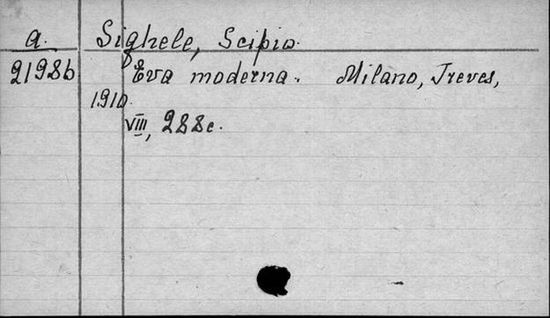 a. Sighele, Scipio.
2198b Eva moderna. Milano, Treves,
1910.
VIII, 288c.